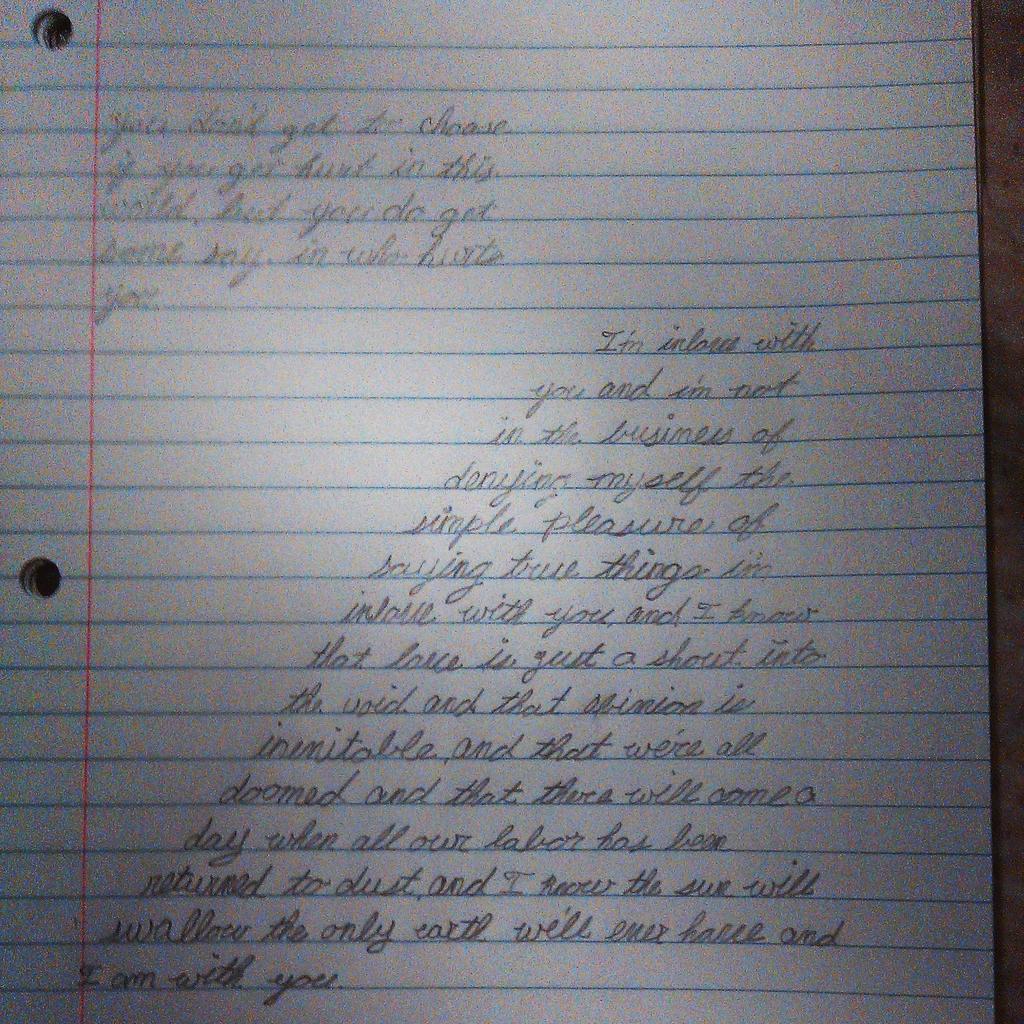 you don't get to choose
if you get hurt in this
world, but you do get
some say in who hurts
you.
I'm inlove with
you and i'm not
in the business of
denying myself the
simple pleasure of
saying true things im
inlove with you and I know
that love is just a shout into
the void and that opinion is
inenitable, and that we're all
doomed and that there will come a
day when all our labor has been
returned to dust, and I know the sun will
swallow the only earth we'll ever have and
I am with you.